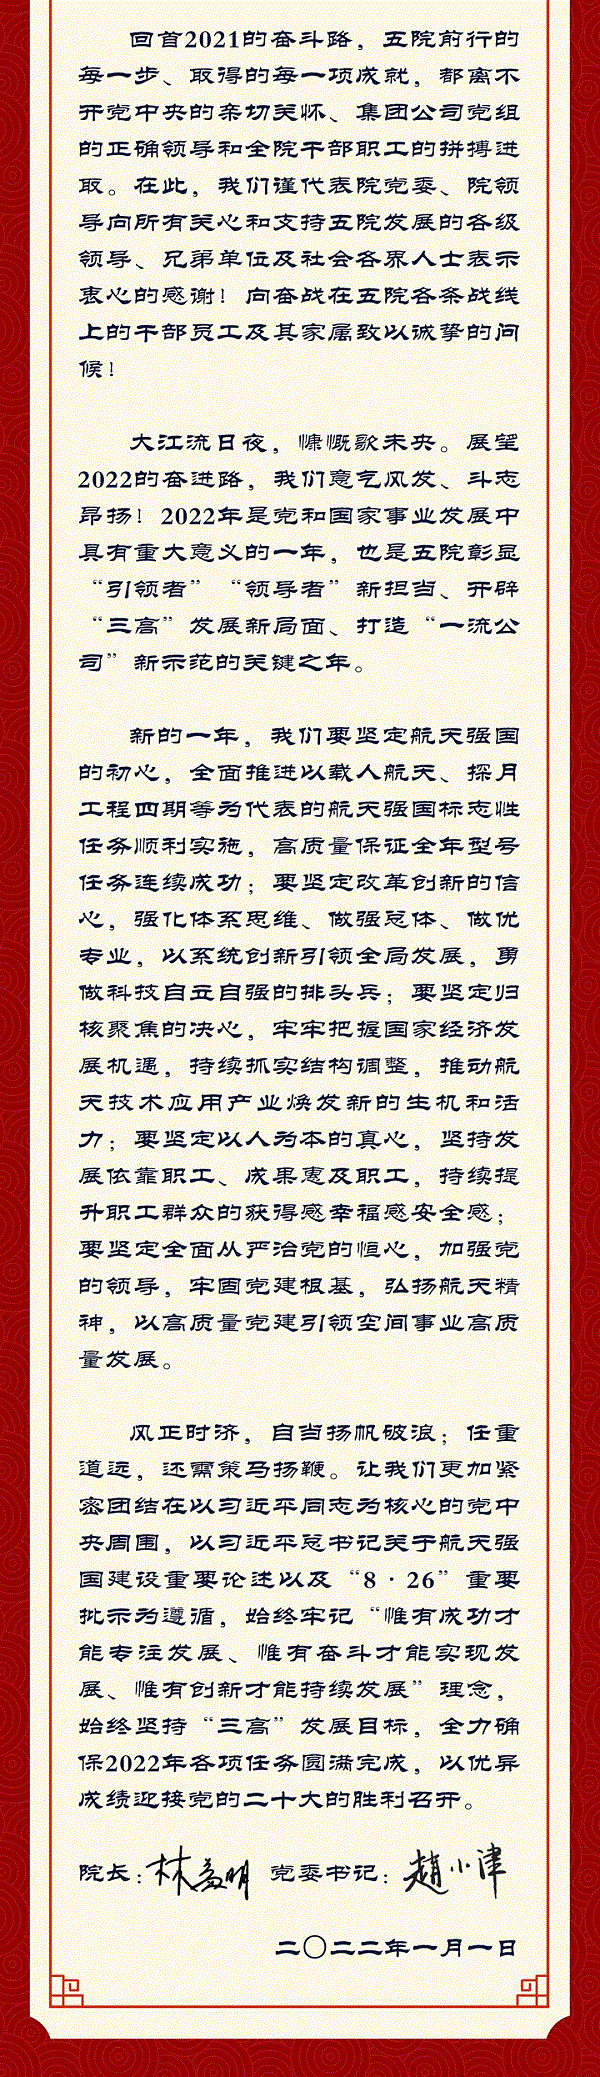 回首2021的奋斗路，五院前行的
每一步、取得的每一项成就，都离不
开党中央的亲切关怀、集团公司党组
的正确领导和全院干部职工的拼搏进
取。在此，我们谨代表院党委、院领
导向所有关心和支持五院发展的各级
领导、兄弟单位及社会各界人士表示
衷心的感谢！向奋战在五院各条战线
上的干部员工及其家属致以诚挚的问
候！
大江流日夜，慷慨歌未央。展望
2022的奋进路，我们意气风发、斗志
昂扬！2022年是党和国家事业发展中
具有重大意义的一年，也是五院彰显
“引领者”“领导者”新担当、开辟
“三高”发展新局面、打造“一流公
司”新示范的关键之年。
新的一年，我们要坚定航天强国
的初心，全面推进以载人航天、探月
工程四期等为代表的航天强国标志性
任务顺利实施，高质量保证全年型号
任务连续成功；要坚定改革创新的信
心，强化体系思维、做强总体、做优
专业，以系统创新引领全局发展，勇
做科技自立自强的排头兵；要坚定归
核聚焦的决心，牢牢把握国家经济发
展机遇，持续抓实结构调整，推动航
天技术应用产业焕发新的生机和活
力；要坚定以人为本的真心，坚持发
展依靠职工、成果惠及职工，持续提
升职工群众的获得感幸福感安全感；
要坚定全面从严治党的恒心，加强党
的领导，牢固党建根基，弘扬航天精
神，以高质量党建引领空间事业高质
量发展。
风正时济，自当扬帆破浪；任重
道远，还需策马扬鞭。让我们更加紧
密团结在以习近平同志为核心的党中
央周围，以习近平总书记关于航天强
国建设重要论述以及“8·26”重要
批示为遵循，始终牢记“惟有成功才
能专注发展、惟有奋斗才能实现发
展、惟有创新才能持续发展”理念，
始终坚持“三高”发展目标，全力确
保2022年各项任务圆满完成，以优异
成绩迎接党的二十大的胜利召开。
院长：林益明 党委书记：赵小津
二〇二二年一月一日